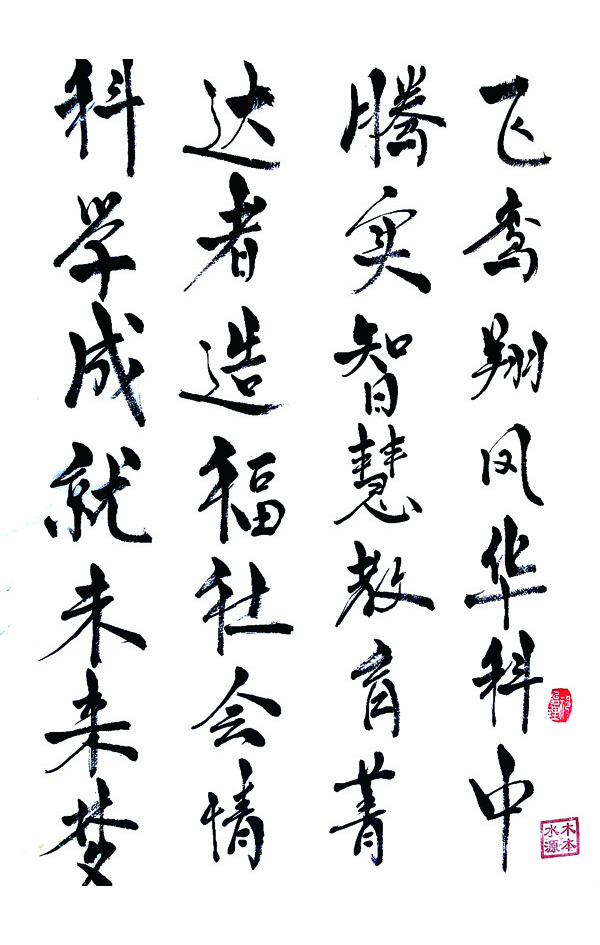 飞鸾翔凤华科中
腾实智慧教育菁
达者造福社会情
科学成就未来梦
木本
水源